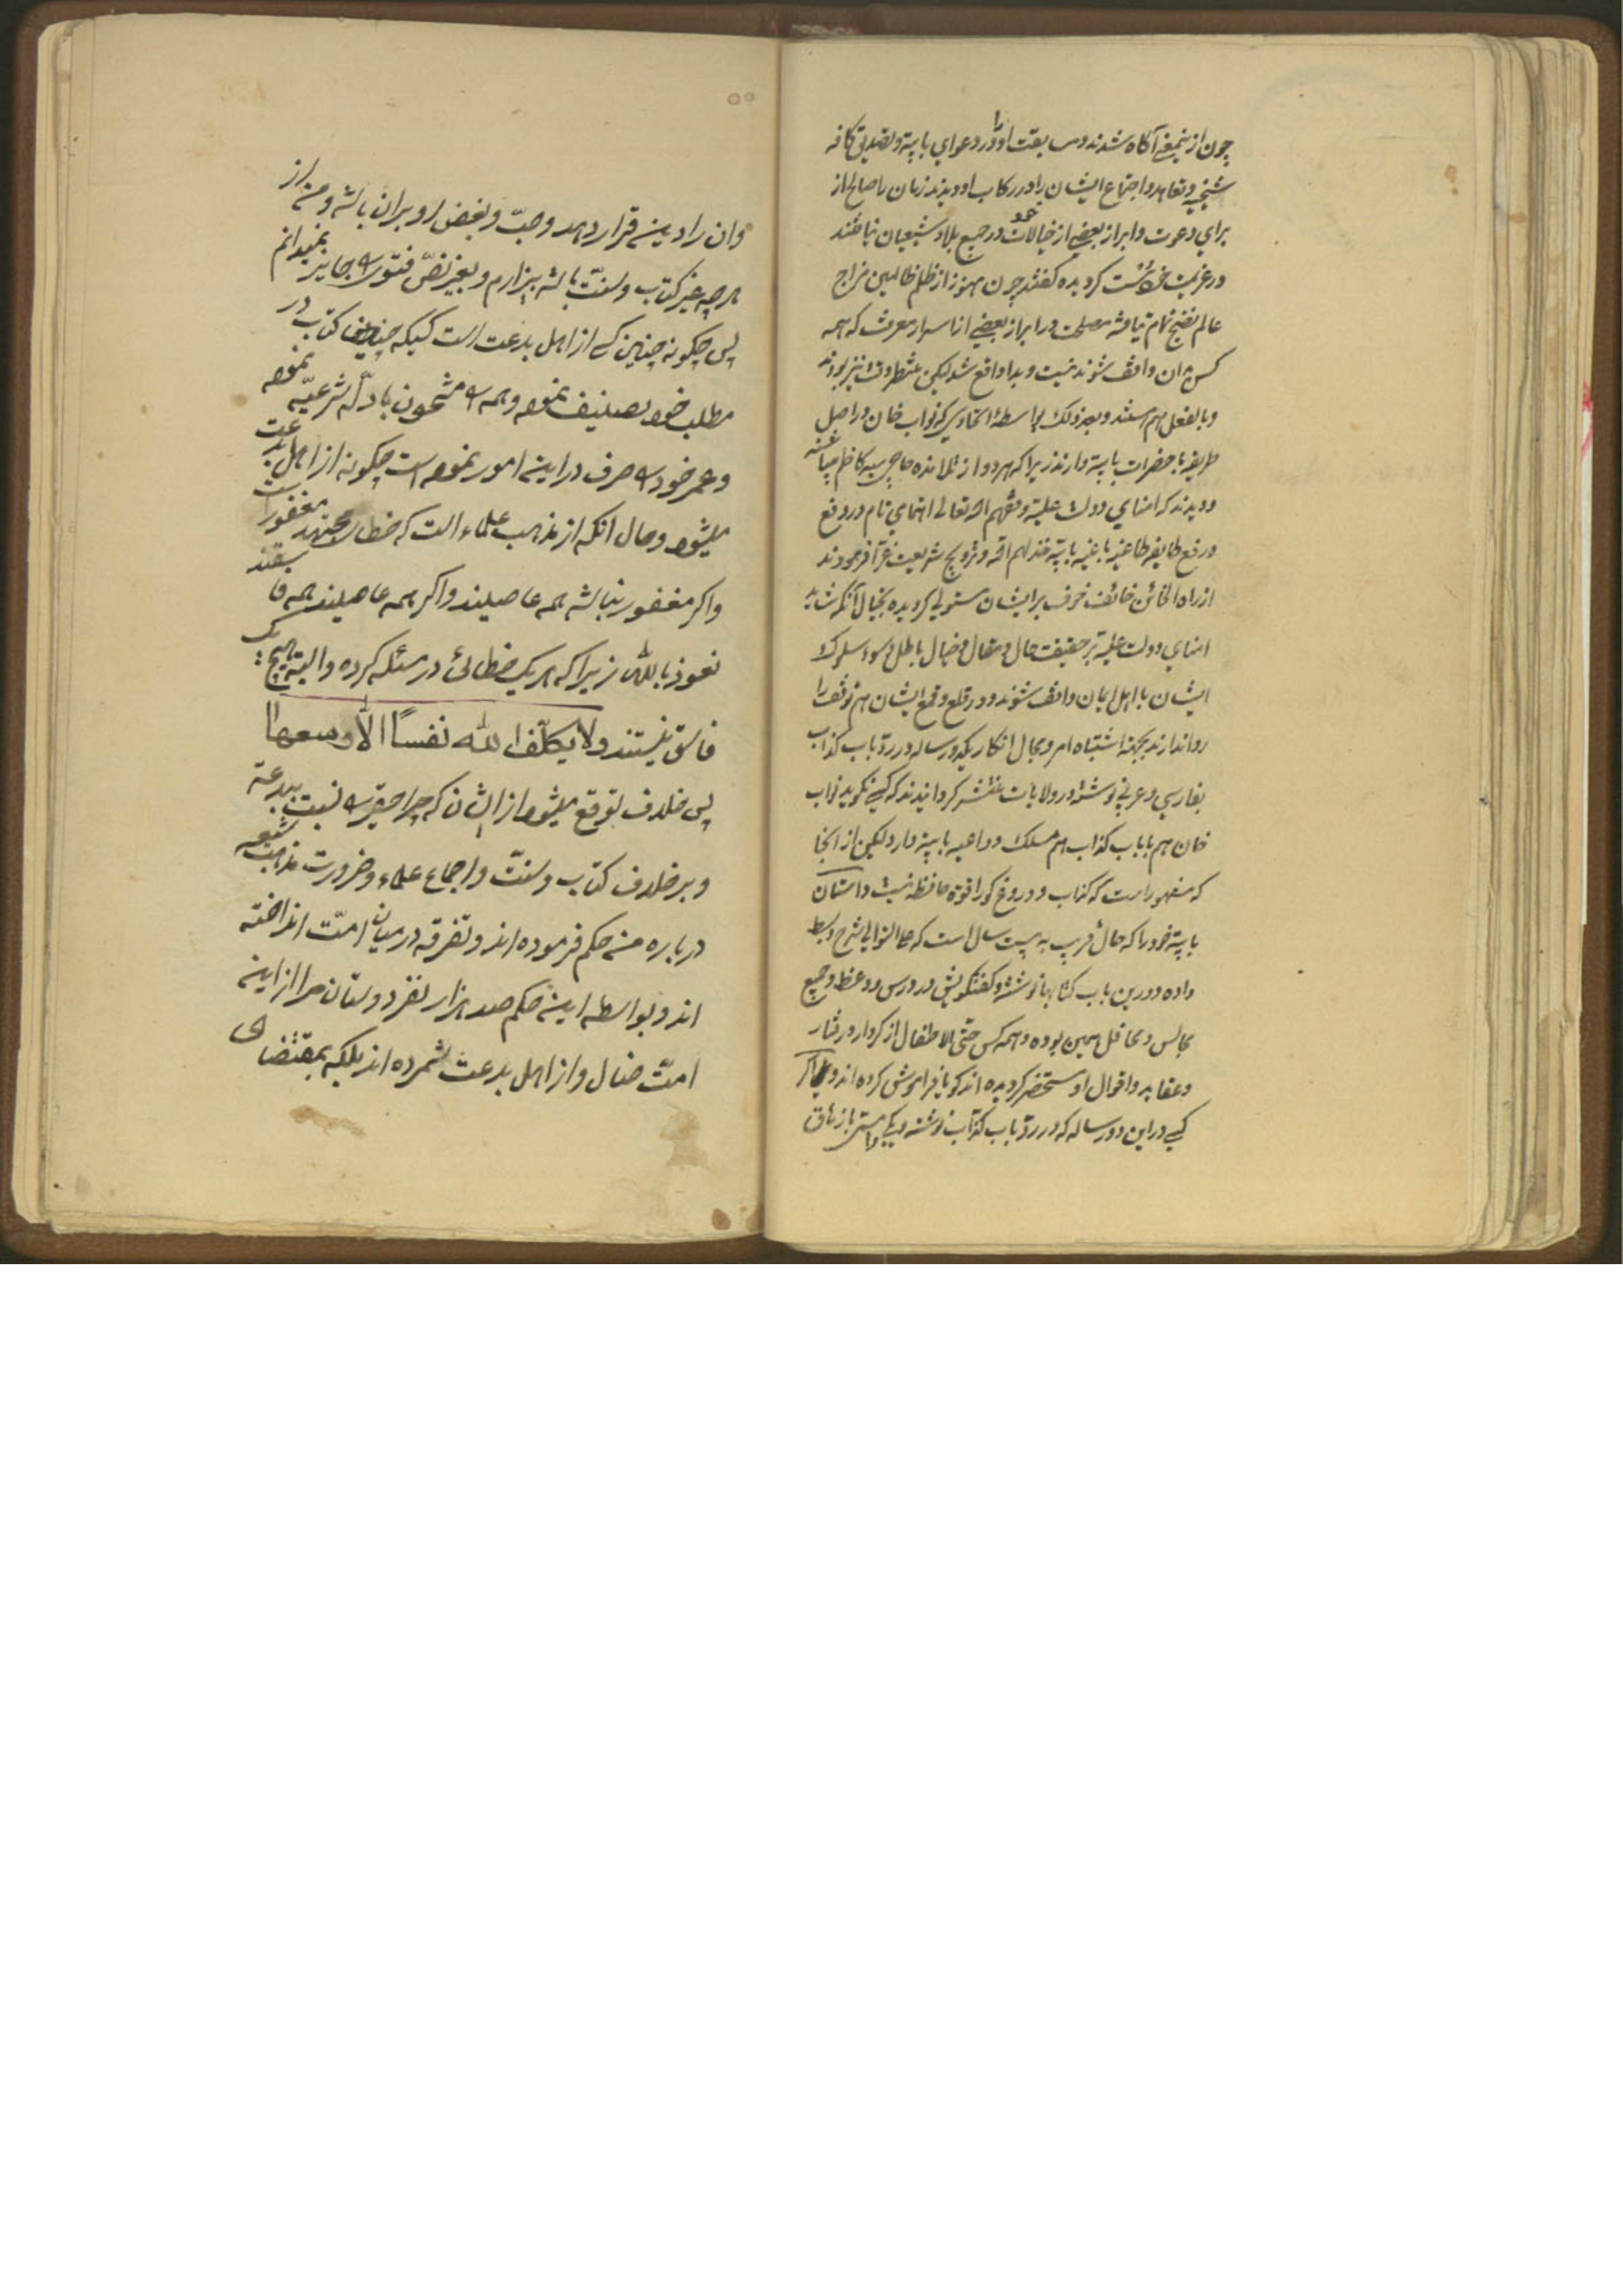 چون از اینمعنی آگاه شدند و سبقت او را در دعوای بابیة و تصدیق کافه
شیخیه و تعاهد و اجتماع ایشان را در رکاب او دیدند زمان را صالح از
برای دعوت و ابراز بعضی از خیالات خود در جمیع بلاد و شیعیان نیافتند
در عزیمت خود سست گردیده گفتند چون هنوز از ظلم ظالمین مزاج
عالم نضج تمام نیافته مصلحت در ابراز بعضی از اسرار معرفت که همه
کس بر ان واقف شوند نیست و بدا واقع شد لیکن منتظر وقت نیز بودند
و بالفعل هم هستند و بعد ذلک بواسطهٔ اتحادی که نواب خان در اصل
طریقه با حضرات بابیة دارند زیرا که هر دو از تلامذه حاجی سید کاظم میباشند
و دیدند که امنای دولت علیة وفقهم الله تعالی اهتمامی تام در دفع
و رفع طایفه طاغیه باغیه بابیة خذلهم الله و ترویج شریعت غرّا فرمودند
از راه الخائن خائف خوف بر ایشان مستولی گردیده بخیال آنکه شاید
امنای دولت علیة بر حقیقت حال و مقال و خیال باطل و سوء سلوک
ایشان با اهل ایمان واقف شوند و در قلع و قمع ایشان هم توقف را
روا ندارند بجهة اشتباه امر و مجال انکار یکدو رساله در ردّ باب کذاب
بفارسی و عربی نوشته و در ولایات منتشر گردانیدند که کسی نگوید نواب
خان هم با باب کذاب هم مسلک و داعیه بابیة دارد لیکن از انجا
که مشهور است که کذاب و دروغ گو را قوة حافظه نیست داستان
بابیة خود را که حال قریب به بیست سال است که علی التوالی شرح و بسط
داده و در این باب کتابها نوشته و گفتگویش در درس و وعظ و جمیع
مجالس و محافل همین بوده و همه کس حتّی الاطفال از کردار و رفتار
و عقاید و اقوال او مستحضر گردیده اند گویا فراموش کرده اند و اگر
کسی در این دو رساله که در ردّ باب کذّاب نوشته
وان را دینی قرار دهد و حبّ و بغض او بران باشد و من از
هر چه غیر کتاب و سنّت باشد بیزارم و بغیر نصّ فتوی را جایز نمیدانم
پس چگونه چنین کسی از اهل بدعت است کسیکه چندین کتاب در
مطلب خود تصنیف نموده و همه را مشحون بادلّه شرعیّه نموده
و عمر خود را صرف در این امور نموده است چگونه از اهل بدعت
میشود و حال انکه از مذهب علماء است که خطای مجتهد مغفور است
و اگر مغفور نباشد همه عاصیند و اگر همه عاصیند همه فاسقند
نعوذ بالله زیرا که هر یک خطائی در مسئله کرده و البته هیچ یک
فاسق نیستند ولا یکلّف الله نفسًا الّا وسعها
پس خلاف توقع میشود از ایشان که چرا حقیر را نسبت ببدعة
و بر خلاف کتاب و سنّت و اجماع علماء و ضرورت مذهب شیعه
درباره من حکم فرموده اند و تفرقه در میان امّت انداخته
اند و بواسطه این حکم صد هزار نفر دوستان مرا از این
امّت ضال و از اهل بدعت شمرده اند بلکه بمقتضای